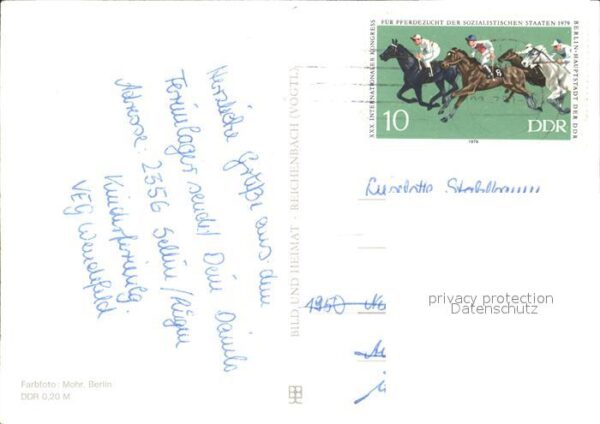 XXX INTERNATIONALER KONGRESS
FÜR PFERDEZUCHT DER SOZIALISTISCHEN STAATEN 1979
BERLIN-HAUPTSTADT DER DDR
10
8
DDR
1979
Herzliche Grüße aus dem
Ferienlager sendet Dein Danilo
Adresse: 2356 Sellin/Rügen
Kinderferienlg.
VEG
BILD UND HEIMAT · REICHENBACH (VOGTL)
1950
privacy protection
Datenschutz
Farbfoto: Mohr, Berlin
DDR 0,20 M